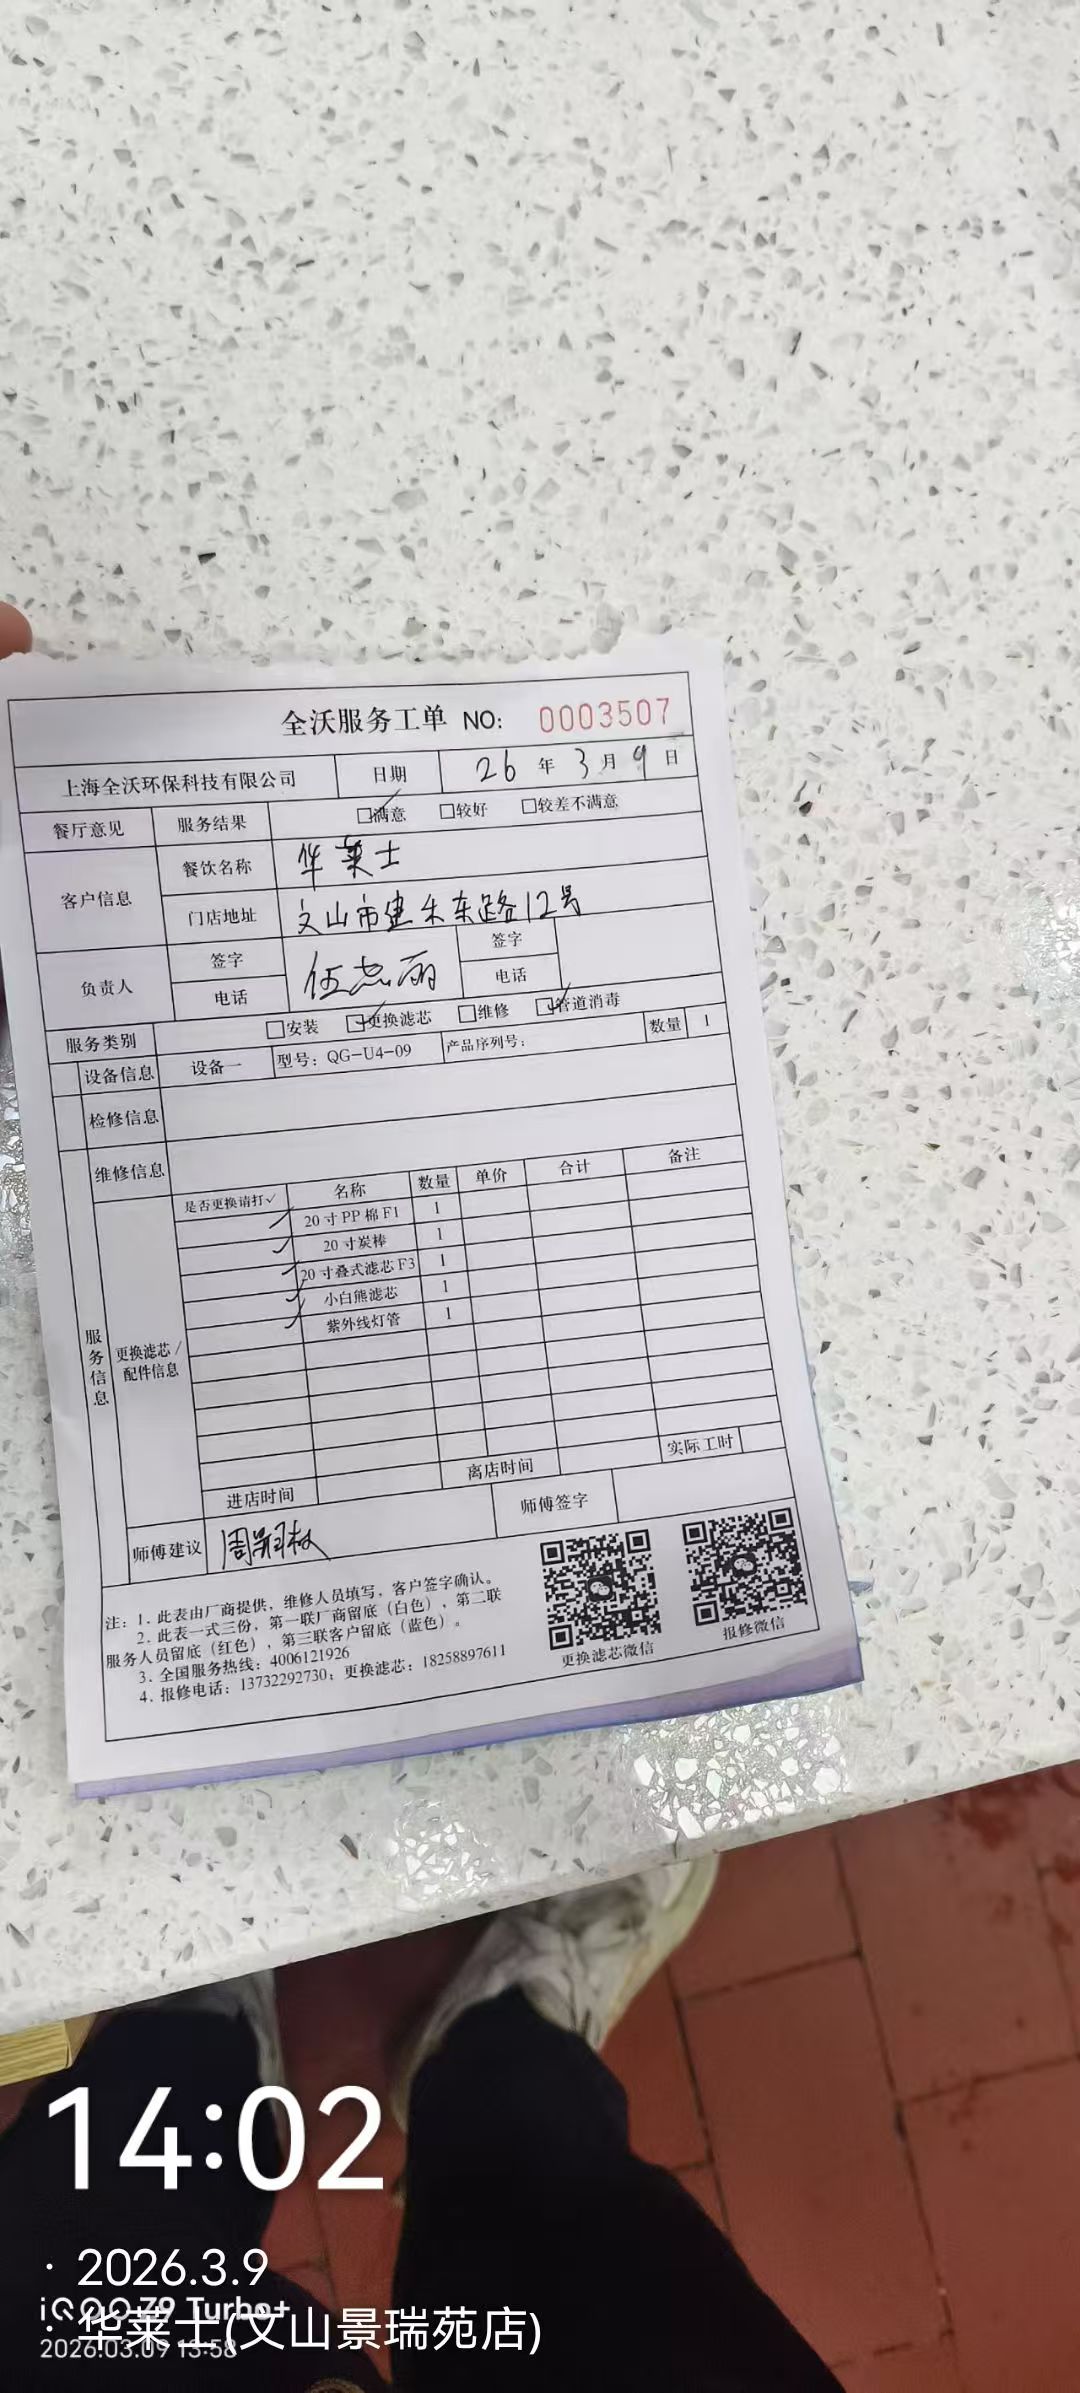 全沃服务工单 NO: 0003507
上海全沃环保科技有限公司 日期 26 年 3 月 9 日
餐厅意见 服务结果 满意 较好 较差不满意
客户信息 餐饮名称 华莱士
门店地址 文山市建禾东路12号
负责人 签字 签字
电话 电话
服务类别 安装 更换滤芯 维修 管道消毒
设备信息 设备一 型号：QG-U4-09 产品序列号： 数量 1
检修信息
维修信息
服务信息
更换滤芯/配件信息
是否更换请打✓ 名称 数量 单价 合计 备注
✓ 20寸PP棉F1 1
✓ 20寸炭棒 1
✓ 20寸叠式滤芯F3 1
✓ 小白熊滤芯 1
✓ 紫外线灯管 1
进店时间 离店时间 实际工时
师傅建议 师傅签字
注：1. 此表由厂商提供，维修人员填写，客户签字确认。
2. 此表一式三份，第一联厂商留底（白色），第二联
服务人员留底（红色），第三联客户留底（蓝色）。
3. 全国服务热线：4006121926
4. 报修电话：13732292730；更换滤芯：18258897611
更换滤芯微信 报修微信
14:02
· 2026.3.9
iQOO Z9 Turbo+
· 华莱士(文山景瑞苑店)
2026.03.09 13:58